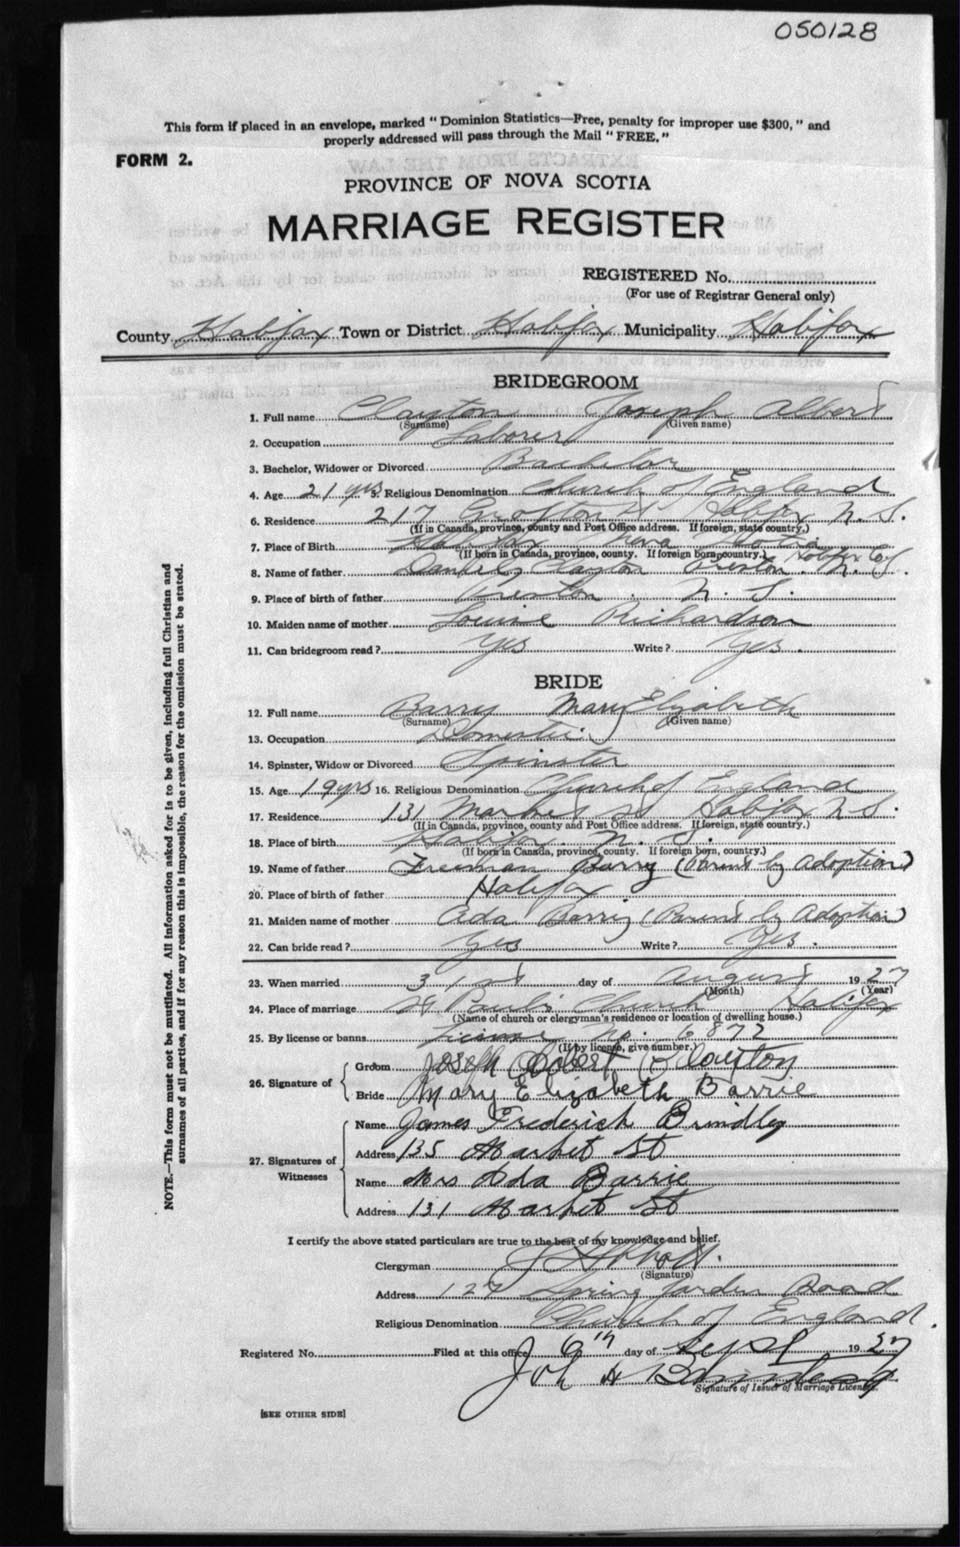 050128
This form if placed in an envelope, marked "Dominion Statistics—Free, penalty for improper use $300," and
properly addressed will pass through the Mail "FREE."
FORM 2.
PROVINCE OF NOVA SCOTIA
MARRIAGE REGISTER
REGISTERED No.
(For use of Registrar General only)
County Halifax Town or District Halifax Municipality Halifax
BRIDEGROOM
1. Full name Clayton Joseph Albert
(Surname) (Given name)
2. Occupation Laborer
3. Bachelor, Widower or Divorced Bachelor
4. Age 21 yrs 5. Religious Denomination Church of England
6. Residence 217 Grafton St Halifax N.S.
(If in Canada, province, county and Post Office address. If foreign, state country.)
7. Place of Birth Halifax Nova Scotia
(If born in Canada, province, county. If foreign born, country.) Halifax Co
8. Name of father Daniel Clayton Preston N.S.
9. Place of birth of father Preston N.S.
10. Maiden name of mother Louise Richardson
11. Can bridegroom read? Yes Write? Yes.
BRIDE
12. Full name Barry Mary Elizabeth
(Surname) (Given name)
13. Occupation Domestic
14. Spinster, Widow or Divorced Spinster
15. Age 19 yrs 16. Religious Denomination Church of England
17. Residence 131 Market St Halifax N.S.
(If in Canada, province, county and Post Office address. If foreign, state country.)
18. Place of birth Halifax N.S.
(If born in Canada, province, county. If foreign born, country.)
19. Name of father Freeman Barry (Parent by Adoption)
20. Place of birth of father Halifax
21. Maiden name of mother Ada Barry (Parent by Adoption)
22. Can bride read? Yes Write? Yes.
23. When married 31st day of August 1927
(Month) (Year)
24. Place of marriage St Paul's Church Halifax
(Name of church or clergyman's residence or location of dwelling house.)
25. By license or banns License No. 6872
(If by license, give number.)
26. Signature of
Groom Joseph Albert Clayton
Bride Mary Elizabeth Barrie
27. Signatures of Witnesses
Name James Frederick Brindley
Address 135 Market St
Name Mrs Ada Barrie
Address 131 Market St
I certify the above stated particulars are true to the best of my knowledge and belief.
Clergyman
(Signature)
Address 127 Spring Garden Road
Religious Denomination Church of England.
Registered No. Filed at this office 6th day of Sept 1927
Signature of Issuer of Marriage Licenses.
[SEE OTHER SIDE]
NOTE.—This form must not be mutilated. All information asked for is to be given, including full Christian and
surnames of all parties, and if for any reason this is impossible, the reason for the omission must be stated.